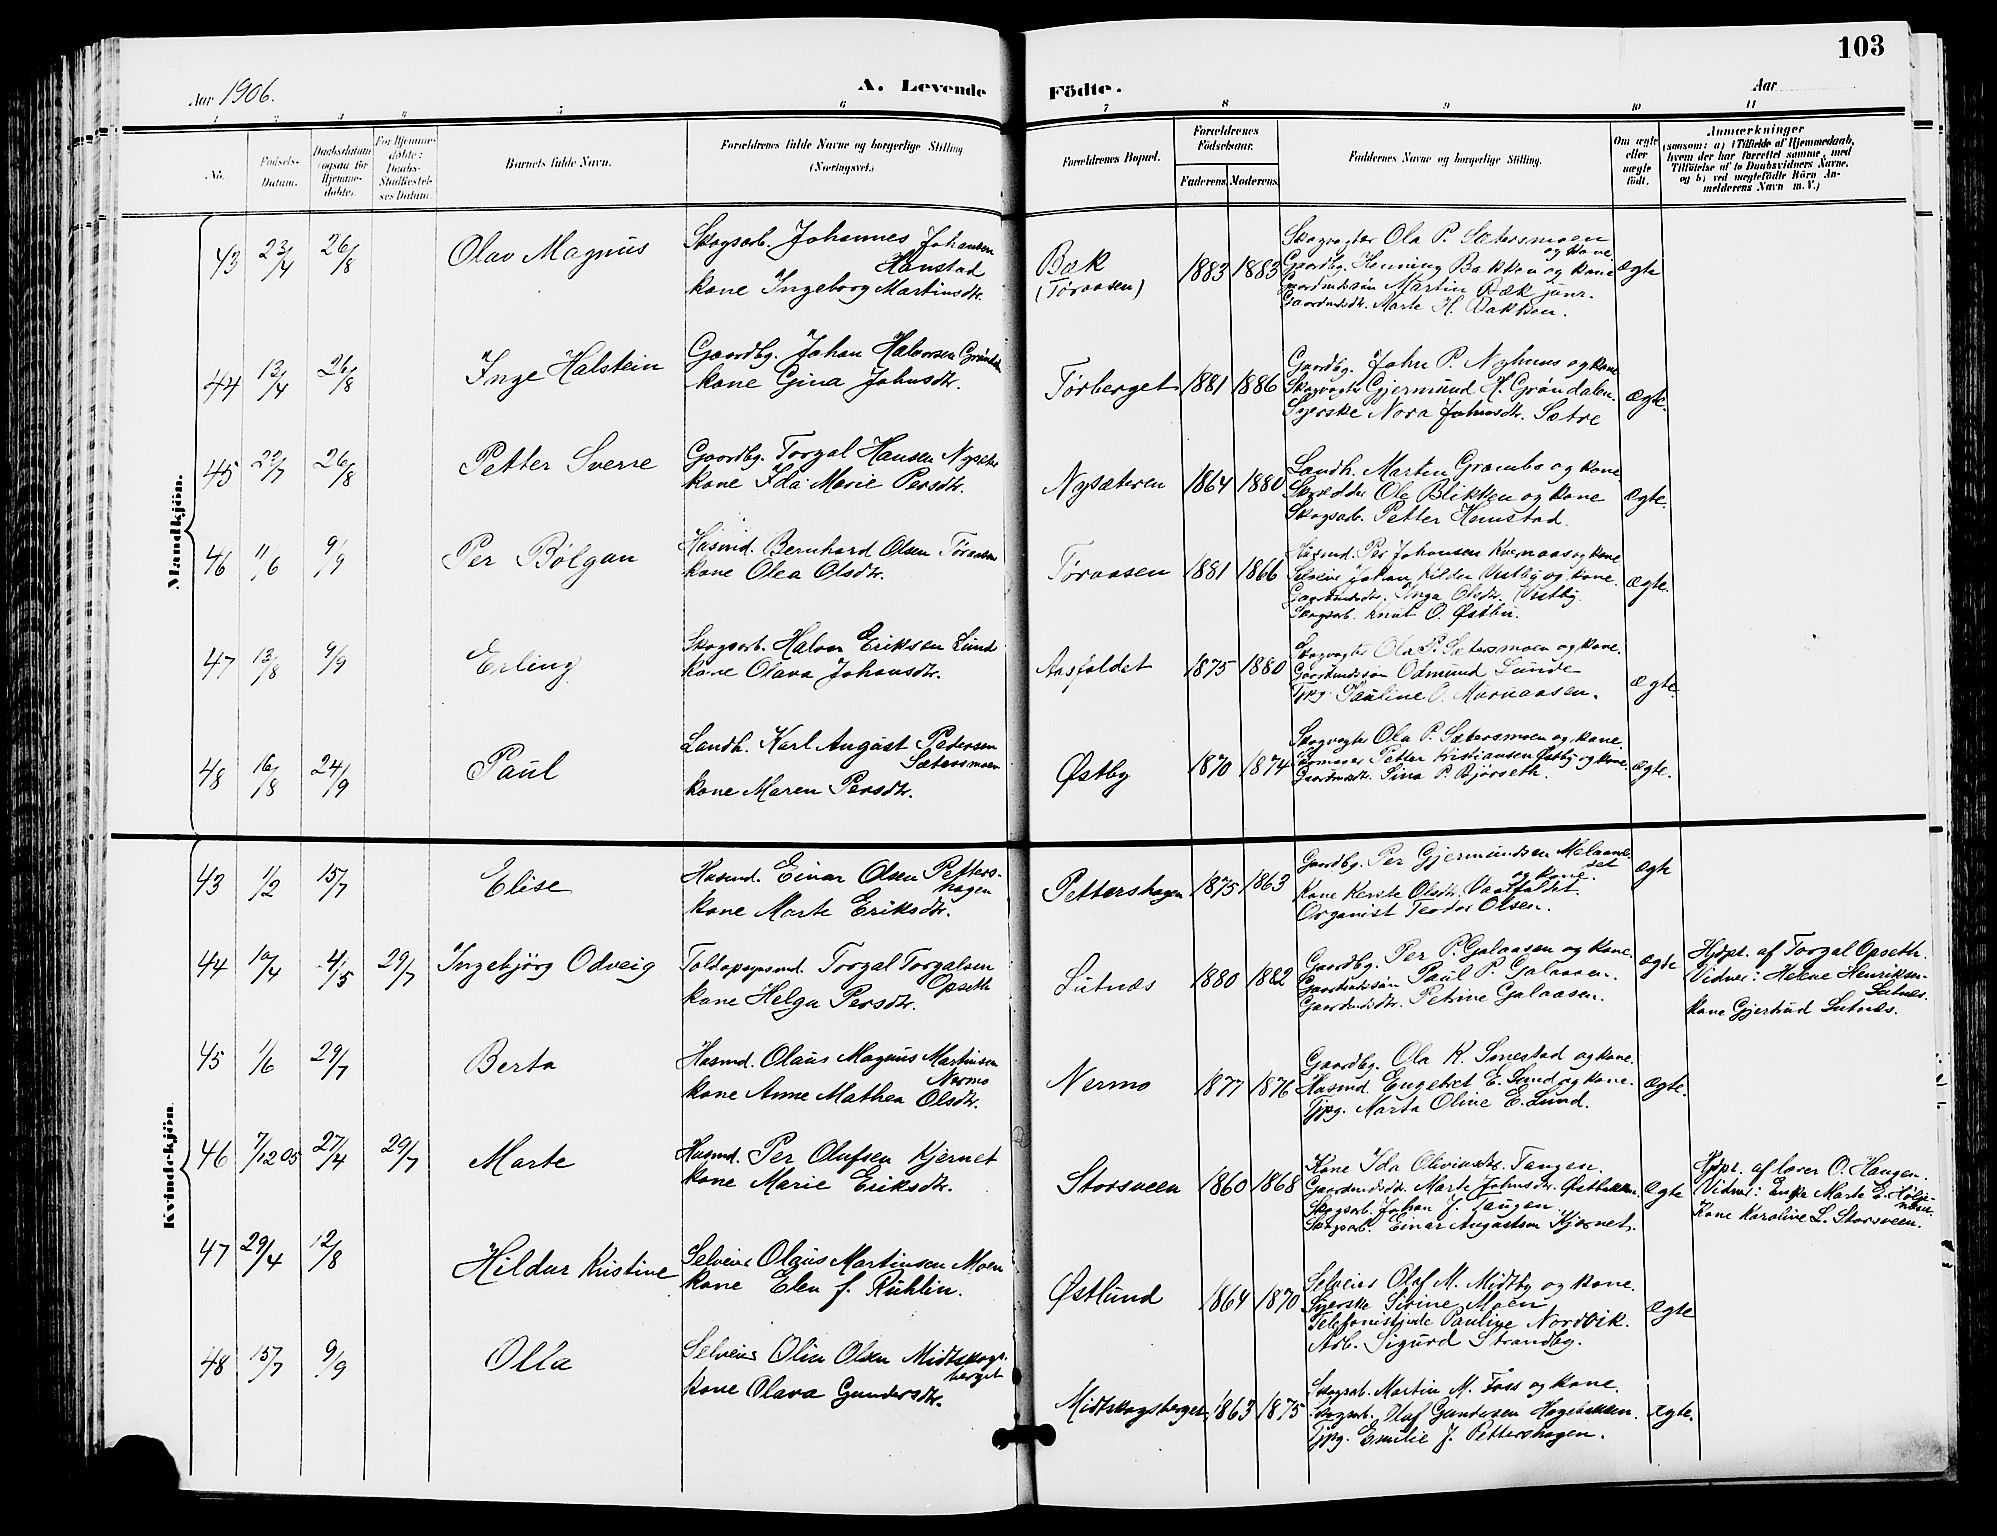 103
Aar 1906.
A. Levende Födte.
Aar
1 2 3 4 5 6 7 8 9 10 11
No.
Födsels-Datum.
Daabsdatum (ogsaa for Hjemmedöbte).
For Hjemmedöbte: Daabs-Stadfæstelses Datum.
Barnets fulde Navn.
Forældrenes fulde Navne og borgerlige Stilling
(Næringsvei.)
Forældrenes Bopæl.
Forældrenes Födselsaar.
Faderens.
Moderens.
Faddernes Navne og borgerlige Stilling.
Om ægte eller uægte født.
Anmærkninger
(saasom: a) i Tilfælde af Hjemmedaab, hvem der har forrettet samme, med Tilföielse af to Daabsvidners Navne, og b) ved uægtefödte Börn Anmelderens Navn m. V.)
Mandkjön.
43 23/4 26/8 Olav Magnus
Skogsarb. Johannes Johansen
Hanstad
kone Ingeborg Martinsdtr.
Bæk
(Tøraasen)
1883 1883
Skogvogter Ola P. Sætersmoen
og kone
Gaardbg. Henning Bakken og kone
Gaardmdssøn Martin Bæk junr.
Gaardmdsdtr. Marte H. Bakken.
ægte
44 13/4 26/8 Inge Halstein
Gaardbg. Johan Halvorsen
kone Gina Johnsdtr.
Tørberget 1881 1886
Gaardbg. John P. Nyhuus og kone
Skogvogter Gjermund H. Grøndalen.
Syerske Nora Johnsdtr. Sætre
ægte.
45 22/7 26/8 Petter Sverre
Gaardbg. Torgal Hansen Nysæter
kone Ida Marie Persdtr.
Nysæteren 1864 1880
Landh. Martin Grambo og kone
Skrædder Ole Blikken og kone
Skogsarb. Petter Hemstad.
ægte.
46 11/6 9/9 Per Bølgan
Husmd. Bernhard Olsen Tøraasen
kone Olea Olsdtr.
Tøraasen 1881 1866
Husmd. Per Johansen Kvernaas og kone
Selveier Johan Kilder Vestby og kone.
Gaardmdsdtr. Inga Olsdtr. Vestby
Skogsarb. Knut O. Østby.
ægte.
47 13/8 9/9 Erling
Skogsarb. Halvor Eriksen Lund
kone Olava Johansdtr.
Aasfaldet 1875 1880
Skogvogter Ola P. Sætersmoen og kone.
Gaardmdssøn Odmund Lunde
Tjpg. Pauline O. Mornaasen.
ægte.
48 16/8 24/9 Paul
Landh. Karl August Pedersen
Sætersmoen
kone Maren Persdtr.
Østby 1870 1874
Skogvogter Ola P. Sætersmoen og kone.
Petter Kristiansen Østby og kone.
Gaardmdsdtr. Sina P. Bjørseth.
ægte.
Kvindekjön
43 1/2 15/7 Elise
Husmd. Einar Olsen Petters-
hagen
kone Marte Eriksdtr.
Pettershagen 1875 1863
Gaardbg. Per Gjermundsen
og kone
Kone Kerste Olsdtr. Vaatfaldet
Organist Teodor Olsen.
ægte
44 10/4 4/5 29/7 Ingebjørg Odveig
Toldopsynsmd. Torgal Torgalsen
Opseth
kone Helga Persdtr.
Lutnæs 1880 1882
Gaardbg. Per P. Galaasen og kone.
Gaardmdssøn Paul P. Galaasen.
Gaardmdsdtr. Petrine Galaasen.
ægte
Hjdpt. af Torgal Opseth.
Vidner: Helene Henriksen
Lutnes.
Kone Gjertrud Lutnes.
45 1/6 29/7 Berta
Husmd. Olaus Magnus Martinsen
Nermo
kone Anne Mathea Olsdtr.
Nermo 1877 1876
Gaardbg. Ola K. Smestad og kone.
Husmd. Engebret E. Lund og kone.
Tjpg. Marta Oline E. Lund.
ægte.
46 7/12 05 27/4 29/7 Marte
Husmd. Per Olufsen Kjernet
kone Marie Eriksdtr.
Storsveen 1860 1868
Kone Ida Olivinsdtr. Tangen.
Gaardmdsdtr. Marte Johnsdtr. Østbakken
Skogsarb. Johan J. Tangen
Skogsarb. Einar Augustson Kjernet.
ægte
Hjdpt. af lærer O. Haugen.
Vidner: Enke Marte E.
Kone Karoline L. Storsveen.
47 29/4 12/8 Hildur Kristine
Selveier Olaus Martinsen Moen
kone Elen f. Rühlin.
Østlund 1864 1870
Selveier Olaf M. Midtby og kone.
Syerske Sirine Moen
Telefonistinde Pauline Nordvik.
Arb. Sigurd Strandby.
ægte
48 15/7 9/9 Olla
Selveier Olia Olsen Midtskogs-
berget
kone Olava Gundersdtr.
Midtskogsberget 1863 1875
Skogsarb. Martin M. Foss og kone.
Skogsarb. Olaf Gundersen Hagebakken.
Tjpg. Emilie J. Pettershagen.
ægte.